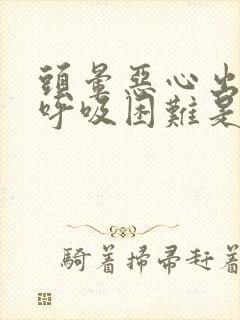 頭暈惡心出
呼吸困難是
騎着掃帚赶着